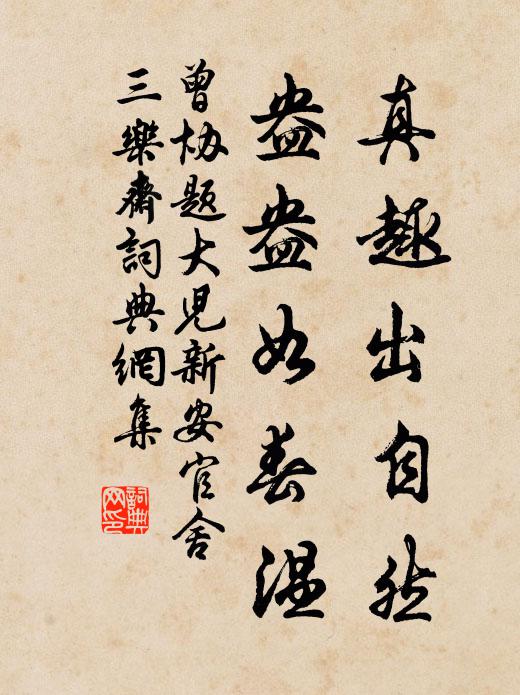 真趣出自然
盎盎如春温
曾协题大児新安官舍
三樂齋詞典網集
詞典网印